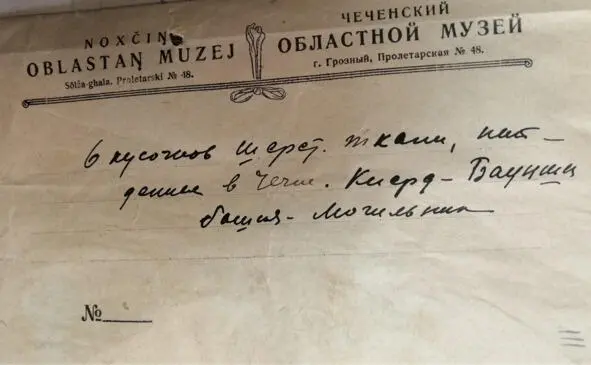 NOXÇIŅ
OBLASTAŅ MUZEJ
Sölƶa-ghala. Proletarski № 48.
ЧЕЧЕНСКИЙ
ОБЛАСТНОЙ МУЗЕЙ
г. Грозный, Пролетарская № 48.
6 кусочков шерст. ткани, най-
денные в Чечне.
башня - могильник
№